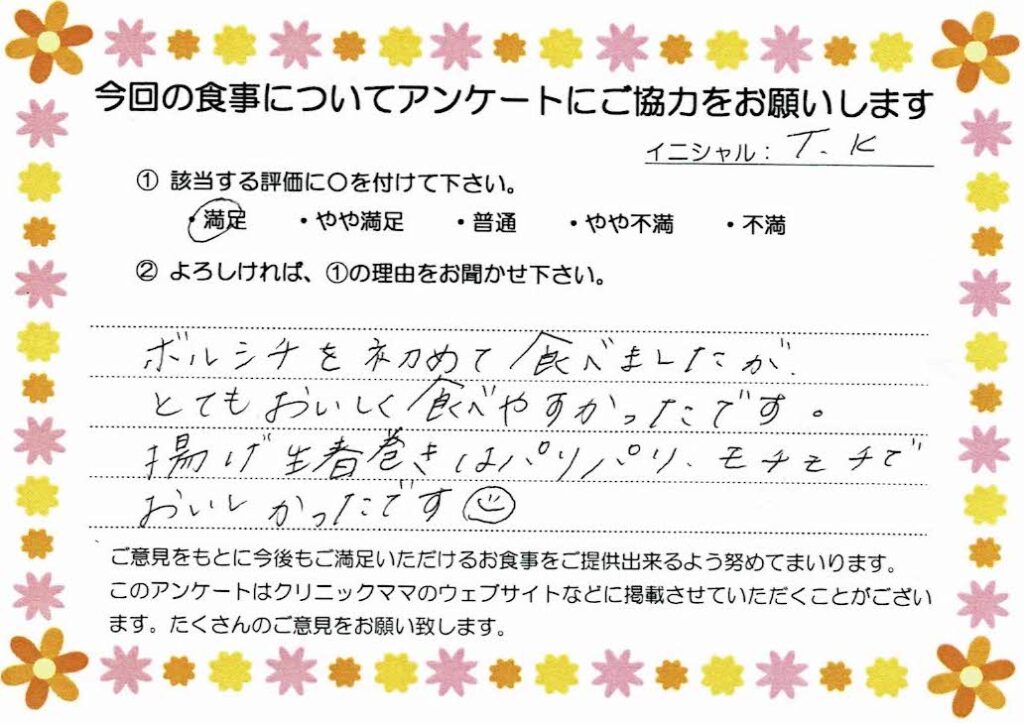 今回の食事についてアンケートにご協力をお願いします
イニシャル： T. K
① 該当する評価に○を付けて下さい。
・満足 ・やや満足 ・普通 ・やや不満 ・不満
② よろしければ、①の理由をお聞かせ下さい。
ボルシチを初めて食べましたが、
とてもおいしく食べやすかったです。
揚げ生春巻きはパリパリ、モチモチで
おいしかったです
ご意見をもとに今後もご満足いただけるお食事をご提供出来るよう努めてまいります。
このアンケートはクリニックママのウェブサイトなどに掲載させていただくことがござい
ます。たくさんのご意見をお願い致します。